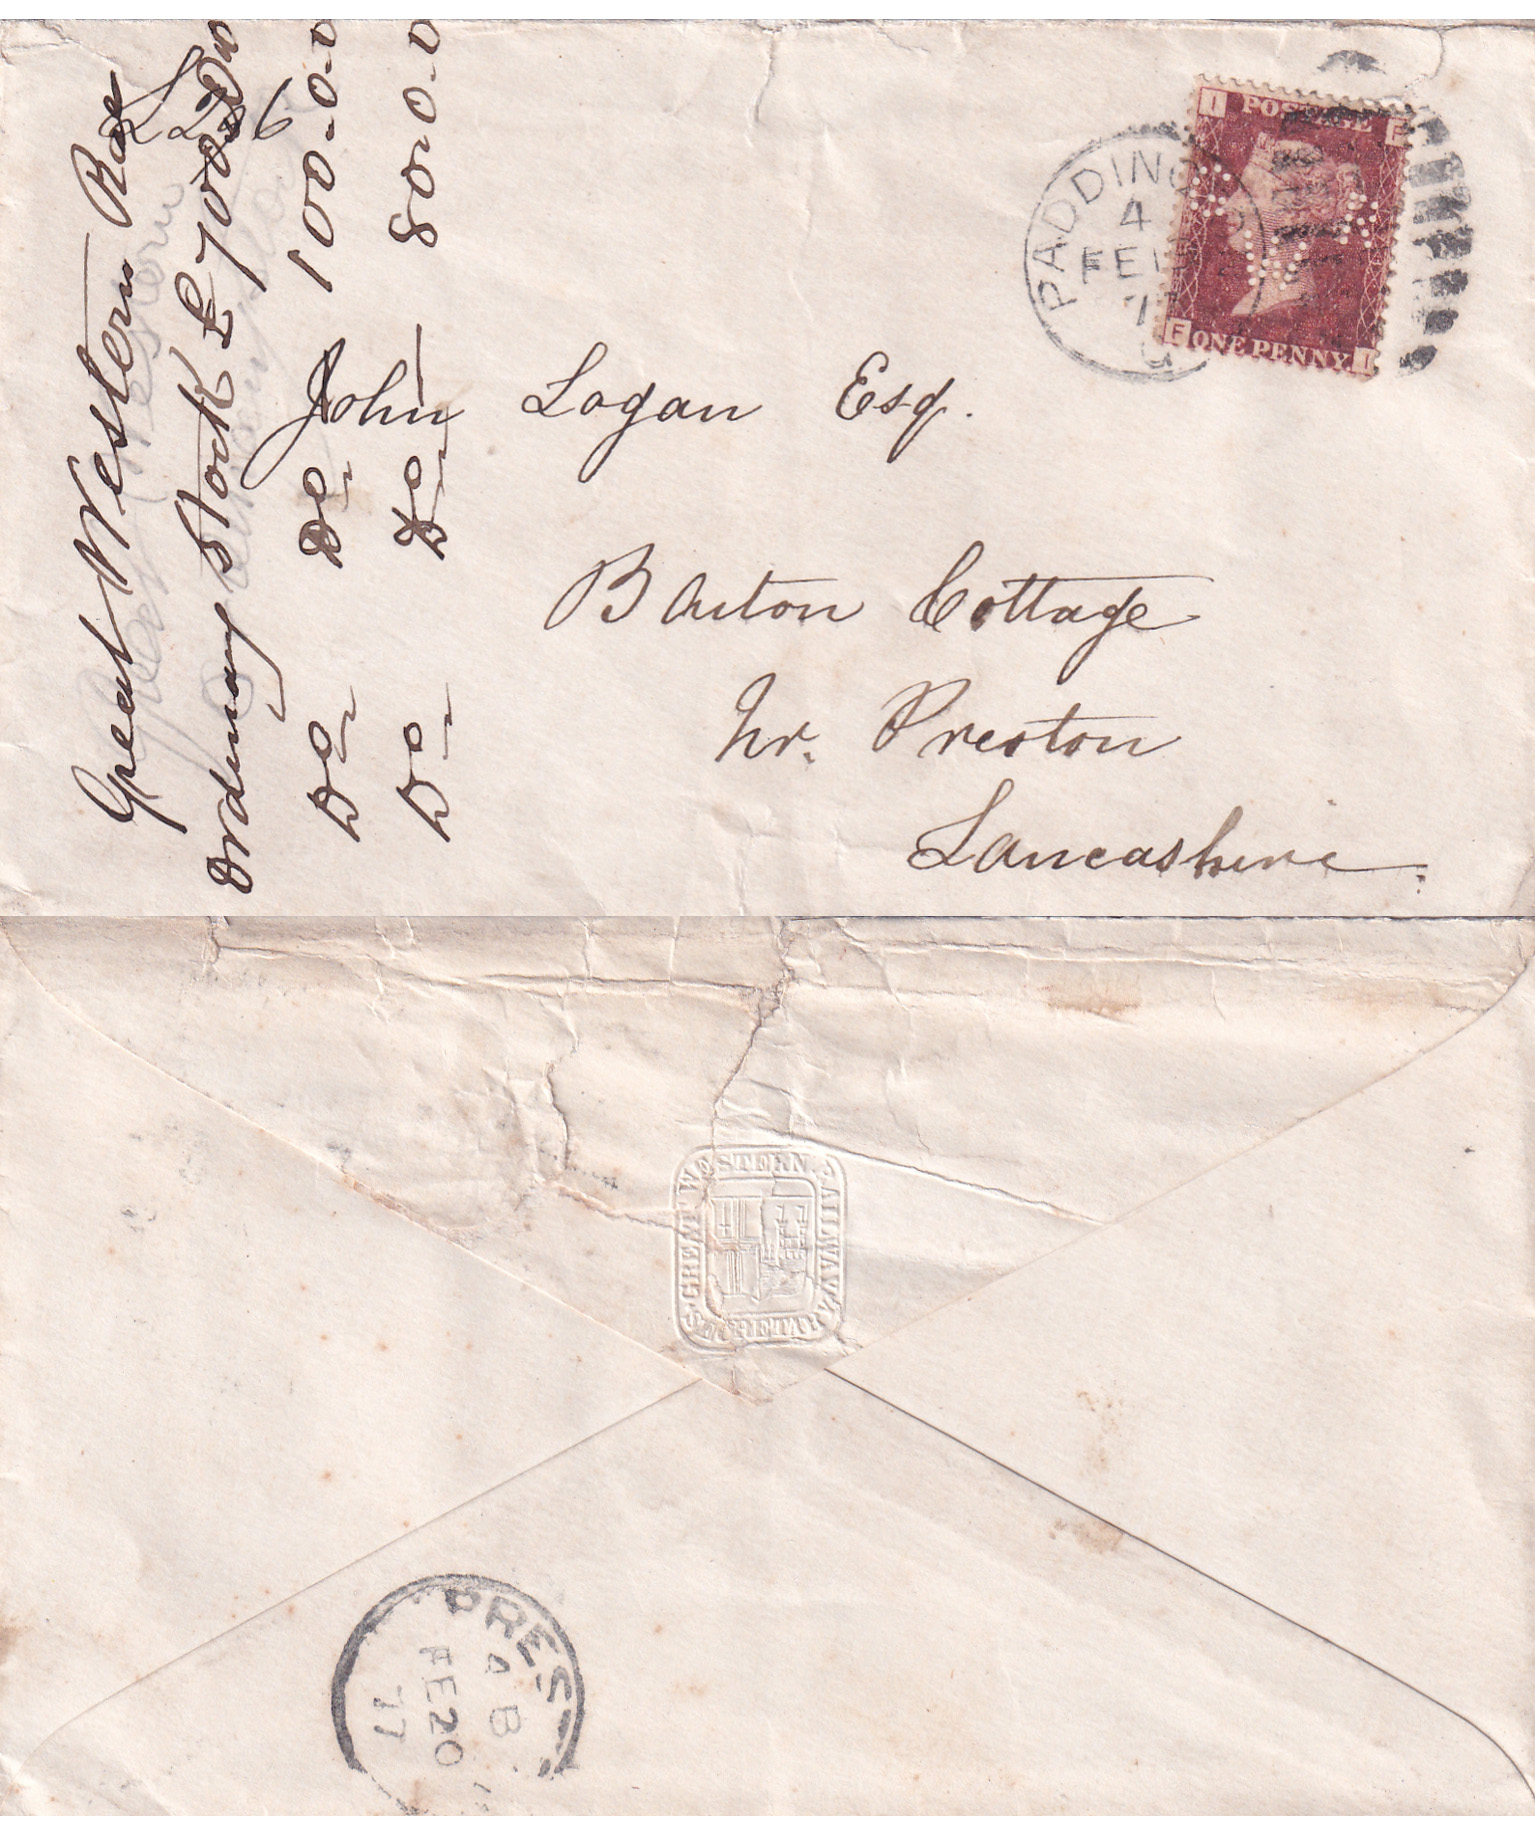 Great Western
Ordinary Stock £700
Do Do 100-0-0
Do Do 80-0-0
I POSTAGE E
E ONE PENNY I
PADDING
4
FE
7
John Logan Esq.
Barton Cottage
Nr. Preston
Lancashire
GREAT WESTERN RAILWAY
SECRETARY
PRES
A B
FE 20
77